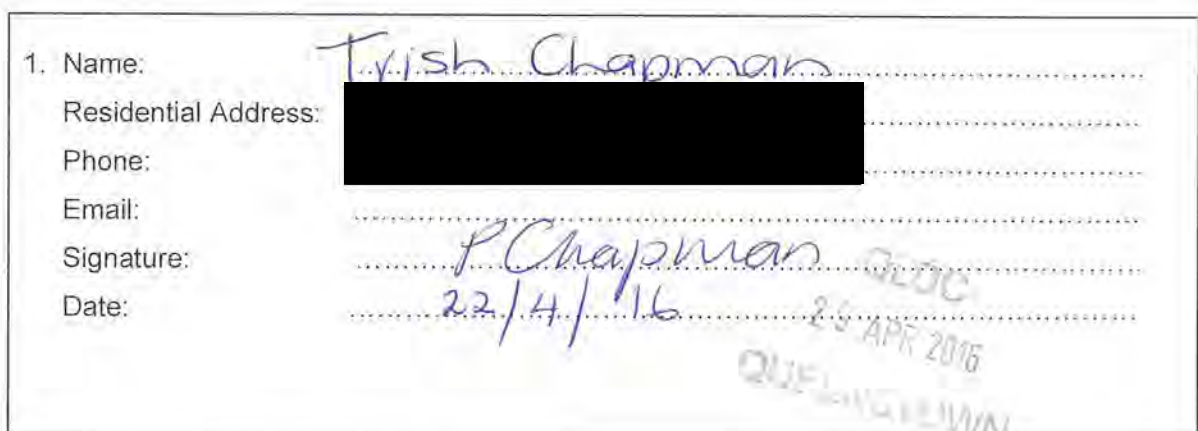 1. Name: Trish Chapman
Residential Address:
Phone:
Email:
Signature: P Chapman
Date: 22/4/16
QLDC
APR 2016